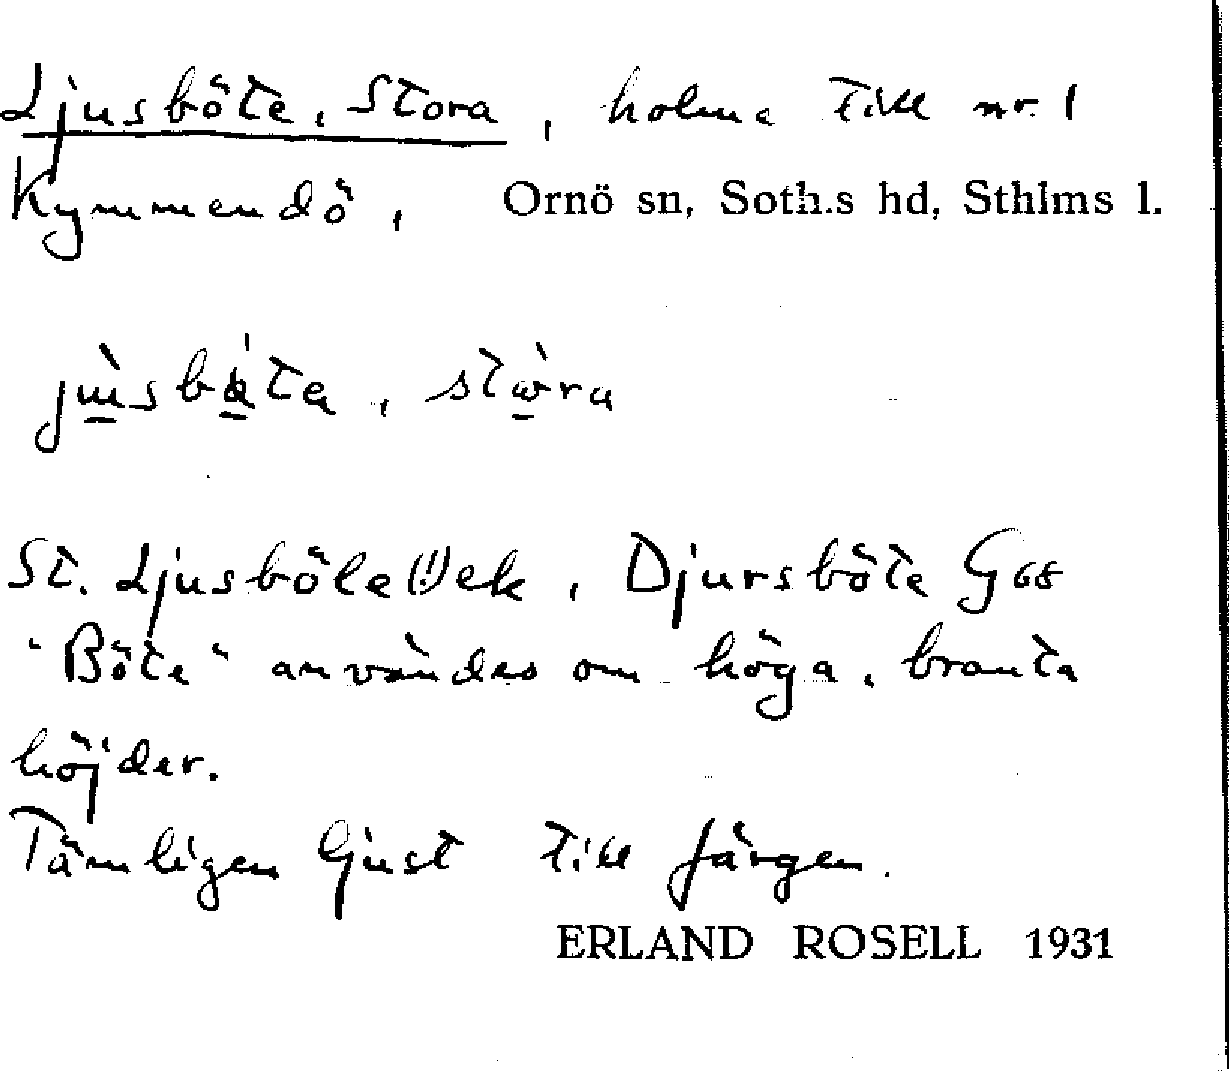 Ljusböte, Stora, holme till nr. 1
Kymmendö, Ornö sn, Soth.s hd, Sthlms l.
stòra
St. Ljusböle(!) ek, Djursböte G68
"Böte" användes om höga, branta
höjder.
Tämligen ljust till färgen.
ERLAND ROSELL 1931